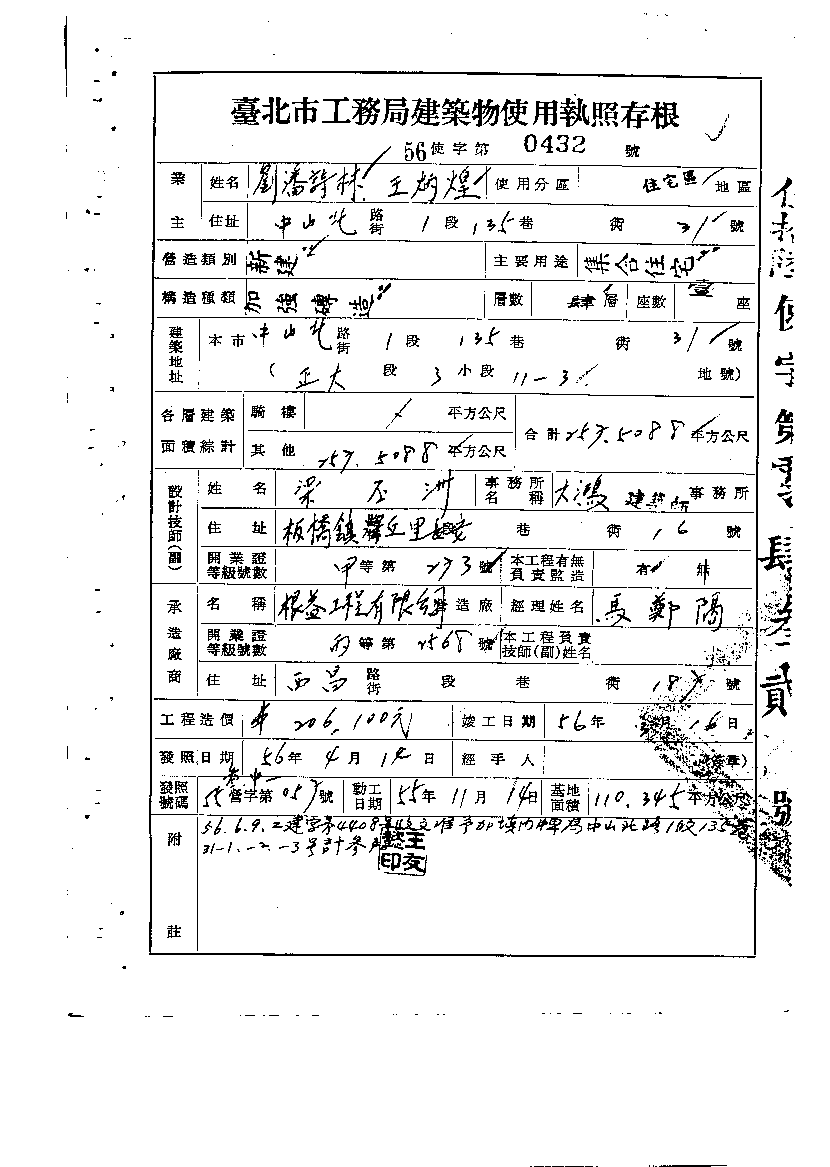 臺北市工務局建築物使用執照存根
56使字第 0432 號
業主 姓名 劉潘 林 王炳煌 使用分區 住宅區 地區
住址 中山北 路街 1 段 135 巷 衖 31 號
營造類別 新建 主要用途 集合住宅
構造種類 加強磚造 層數 肆層 座數 壹座
建築地址 本市 中山北 路街 1 段 135 巷 衖 31 號
( 正大 段 3 小段 11-3 地號)
各層建築面積綜計 騎樓 平方公尺 合計 257.5088 平方公尺
其他 257.5088 平方公尺
設計技師(副) 姓名 梁 洲 事務所名稱 大鴻建築師事務所
住址 板橋鎮 里 巷 衖 16 號
開業證等級號數 甲等第 273 號 本工程有無負責監造 有 無
承造廠商 名稱 根益工程有限 造廠 經理姓名 馬鄭陽
開業證等級號數 等第 2568 號 本工程負責技師(副)姓名
住址 西昌 路街 段 巷 衖 187 號
工程造價 206,100元 竣工日期 56年 月 16日
發照日期 56年 4月 14日 經手人 (簽章)
發照號碼 55營字第 057 號 動工日期 55年 11月 14日 基地面積 110.345 平方公尺
附註 56.6.9.二建字第4408號 文准予加填門牌為中山北路1段135巷
31-1.-2.-3號計參
王友懿印
伍拾陸使字第零肆參貳號